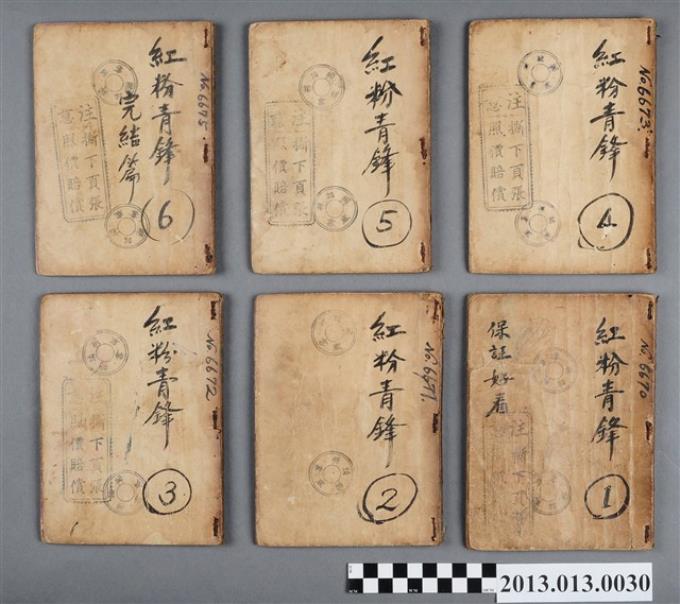 紅粉青鋒
完結篇
6
No 6675.
注 撕下頁張
意 照價賠償
紅粉青鋒
5
注 撕下頁張
意 照價賠償
紅粉青鋒
4
No 6673.
注 撕下頁張
意 照價賠償
紅粉青鋒
3
No 6672
注 撕下頁張
意 照價賠償
紅粉青鋒
2
No 6671.
紅粉青鋒
保証好看
1
No 6670
注 撕下
2013.013.0030